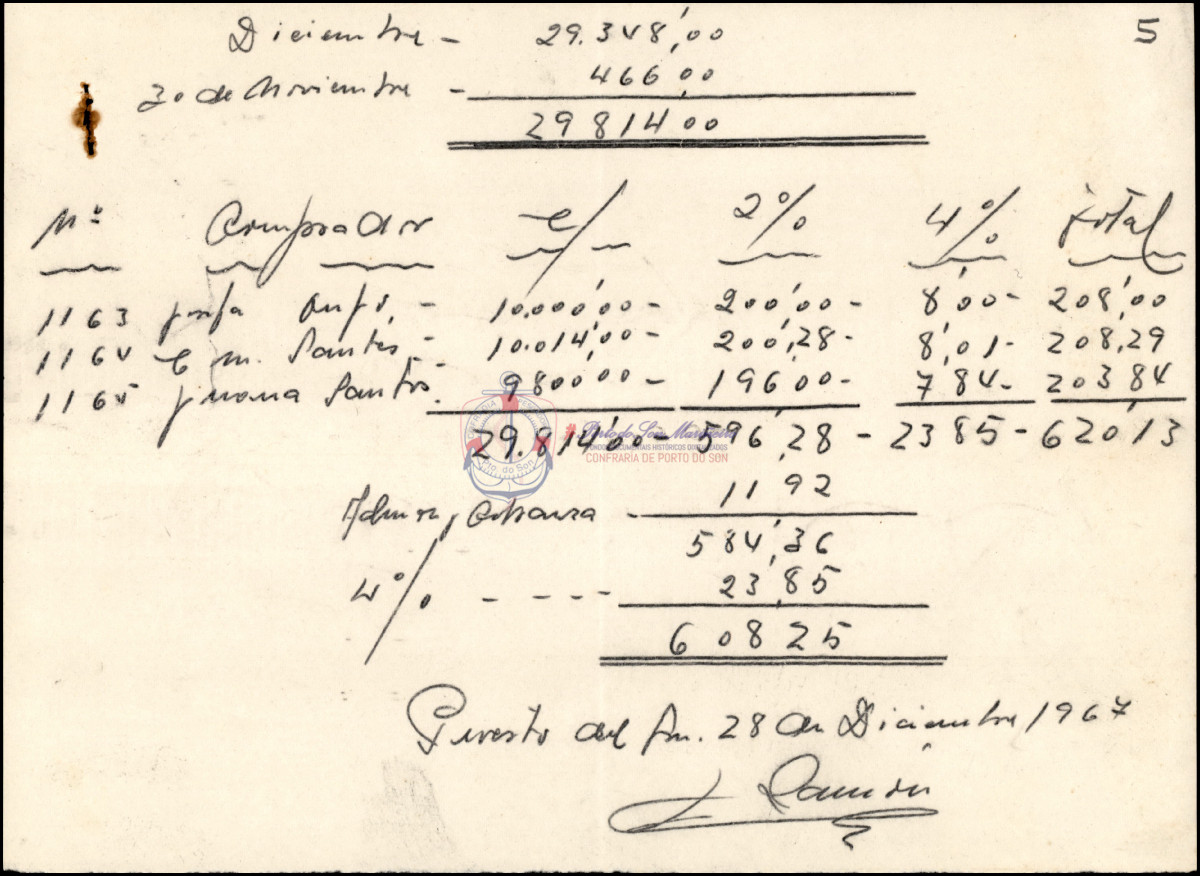 5
Diciembre - 29.348,00
30 de Noviembre - 466,00
29814,00
Nº Comprador C/ 2% 4% total
1163 10.000,00 - 200,00 - 8,00 - 208,00
1164 C m. Santos - 10.014,00 - 200,28 - 8,01 - 208,29
1165 Juana Santos. 9800,00 - 196,00 - 7,84 - 203,84
29.814,00 - 596,28 - 23,85 - 620,13
11,92
584,36
4% - - - - 23,85
608,25
Puerto del Son. 28 de Diciembre 1967
Ramón
Porto do Son Marineiro
FONDOS DOCUMENTAIS HISTÓRICOS DIXITALIZADOS
CONFRARÍA DE PORTO DO SON
Pto. do Son